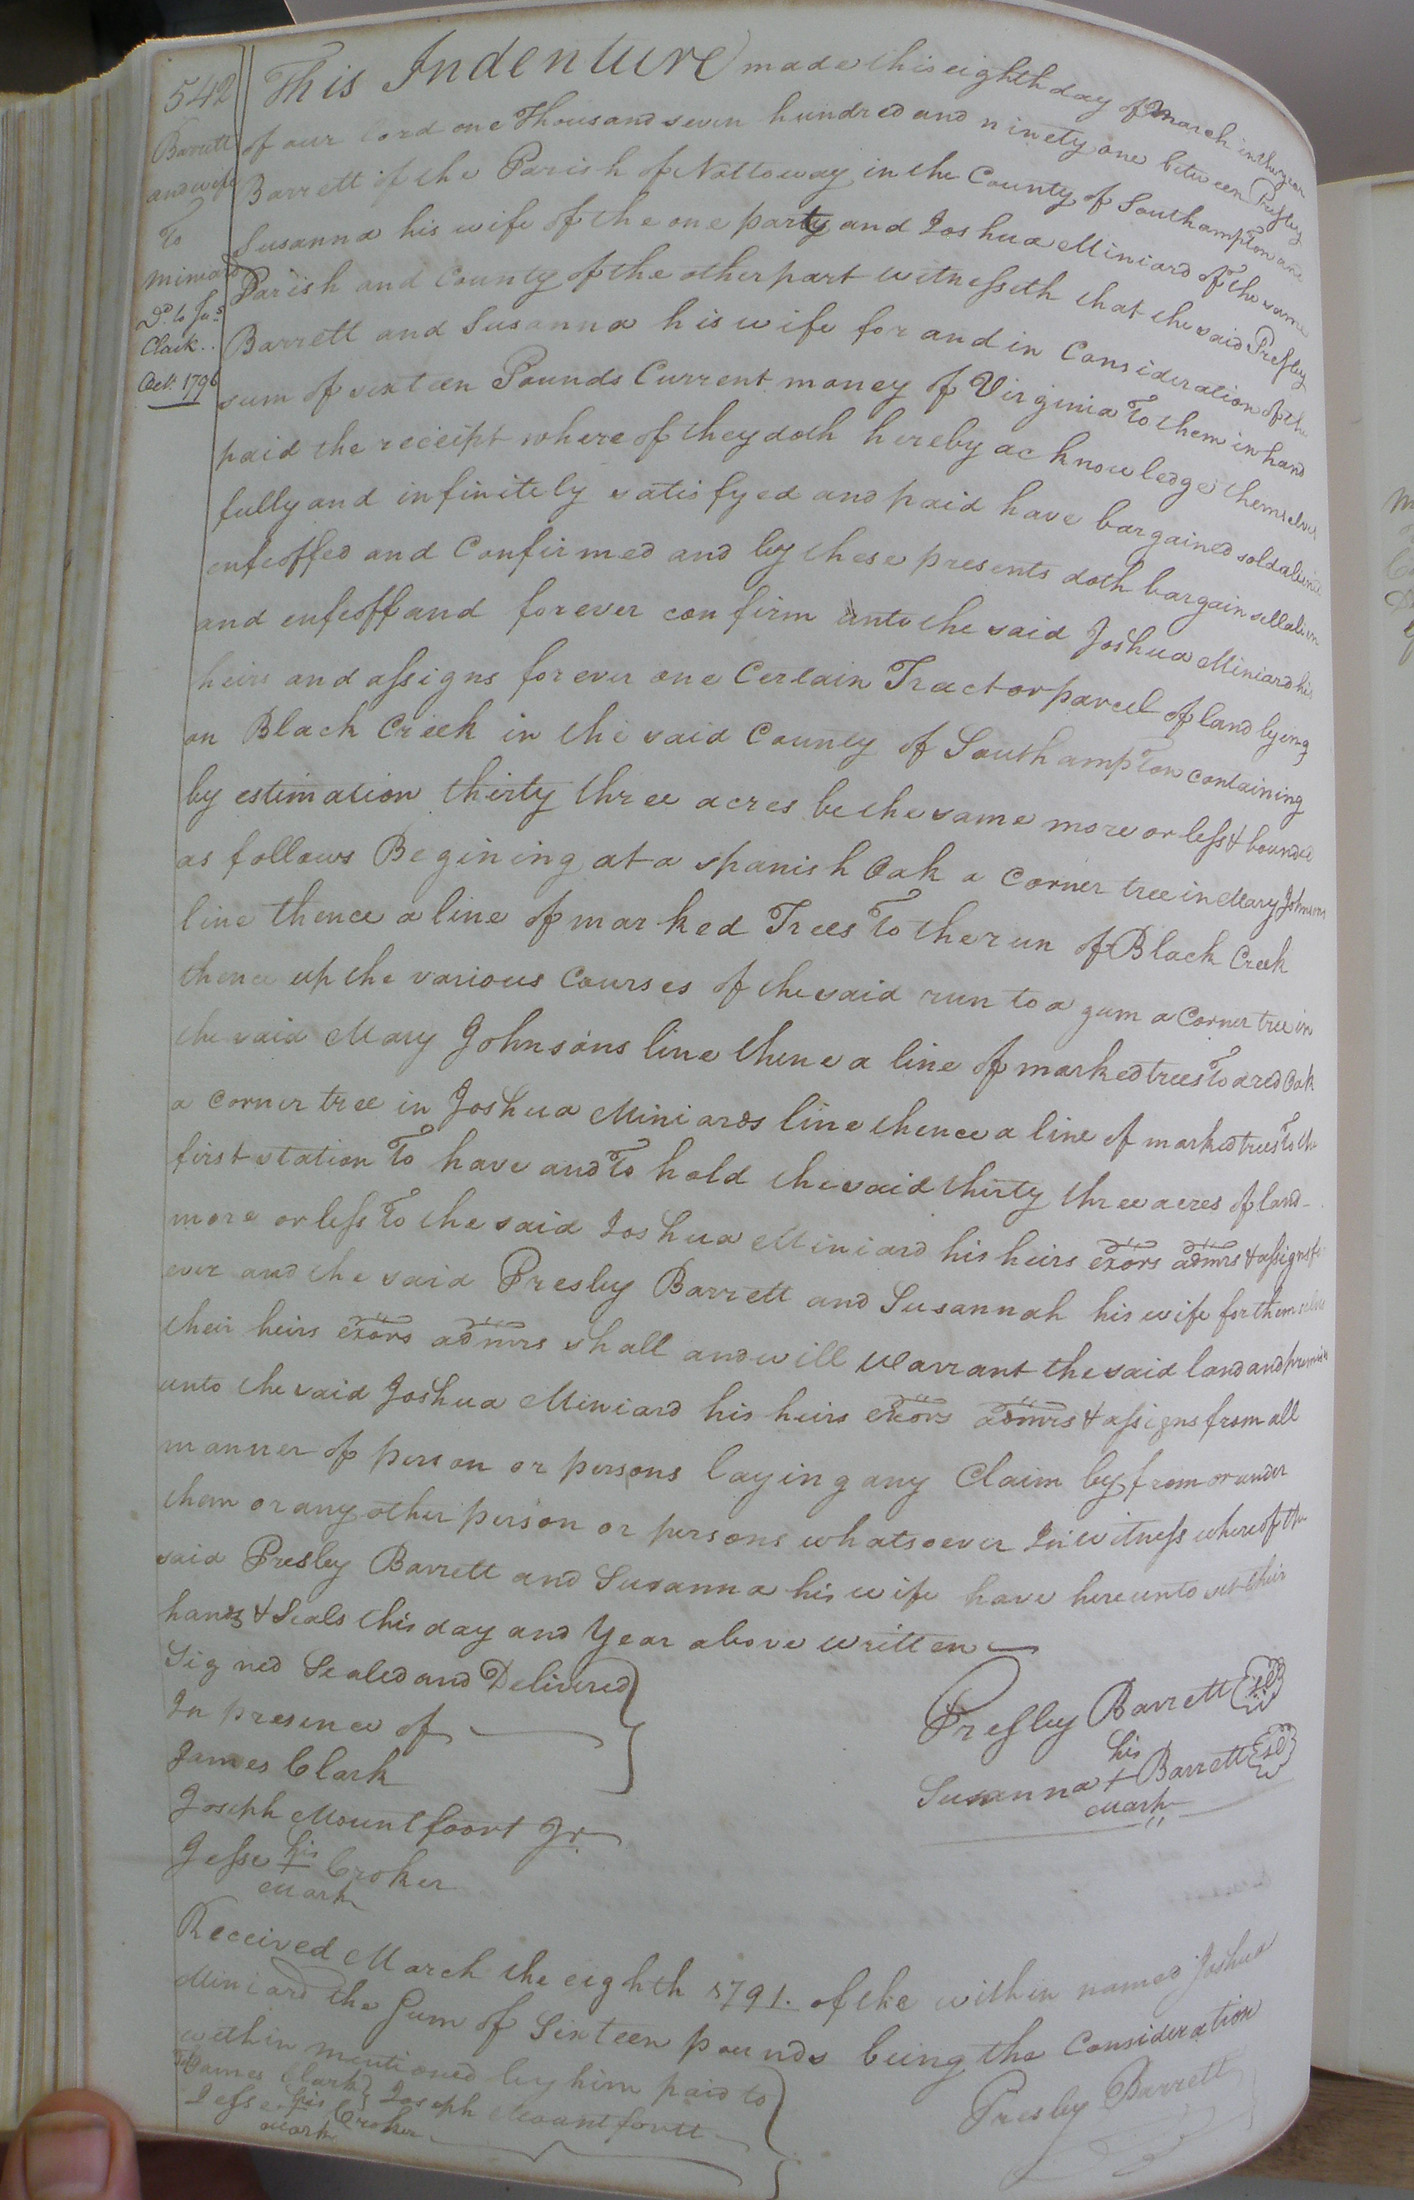 542
Barrett
and wife
To
Miniard
Dd. to Jas.
Clark..
Oct. 1796
This Indenture made this eighth day of March in the year
of our Lord one Thousand seven hundred and ninety one between Presley
Barrett of the Parish of Nottoway in the County of Southampton and
Susanna his wife of the one party and Joshua Miniard of the same
Parish and County of the other part witnesseth that the said Presley
Barrett and Susanna his wife for and in Consideration of the
sum of sixteen Pounds Current money of Virginia To them in hand
paid the receipt where of they doth hereby acknowledge themselves
fully and infinitely satisfyed and paid have bargained sold
enfeoffed and Confirmed and by these presents doth bargain sell alien
and enfeoff and forever confirm unto the said Joshua Miniard his
heirs and assigns forever one Certain Tract or parcel of land lying
on Black Creek in the said County of Southampton containing
by estimation thirty three acres be the same more or less & bounded
as follows Begining at a spanish Oak a Corner tree in Mary Johnsons
line thence a line of marked Trees To the run of Black Creek
thence up the various Courses of the said run to a gum a Corner tree in
the said Mary Johnsons line thence a line of marked trees To a red Oak
a corner tree in Joshua Miniards line thence a line of marked trees To the
first station To have and To hold the said thirty three acres of land
more or less To the said Joshua Miniard his heirs exors admrs & assigns for
ever and the said Presley Barrett and Susannah his wife for themselves
their heirs exors admrs shall and will Warrant the said land and premises
unto the said Joshua Miniard his heirs exors admrs & assigns from all
manner of person or persons laying any Claim by from or under
them or any other person or persons whatsoever In witness whereof the
said Presley Barrett and Susanna his wife have hereunto set their
hands & Seals this day and Year above written
Signed Sealed and Delivered
In presence of
James Clark
Joseph Mountfoort Jr.
Jesse his Croker
mark
Presley Barrett Sd
his
Susanna + Barrett Sd
mark
Received March the eighth 1791. of the within named Joshua
Miniard the Sum of Sixteen pounds being the Consideration
within mentioned by him paid to
James Clark Joseph Mountfortt
Jesse his Croker
mark
Presley Barrett